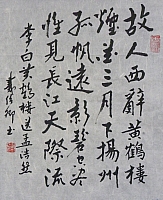 故人西辭黃鶴樓
煙花三月下揚州
孤帆遠影碧空盡
惟見長江天際流
李白黃鶴樓送孟浩然